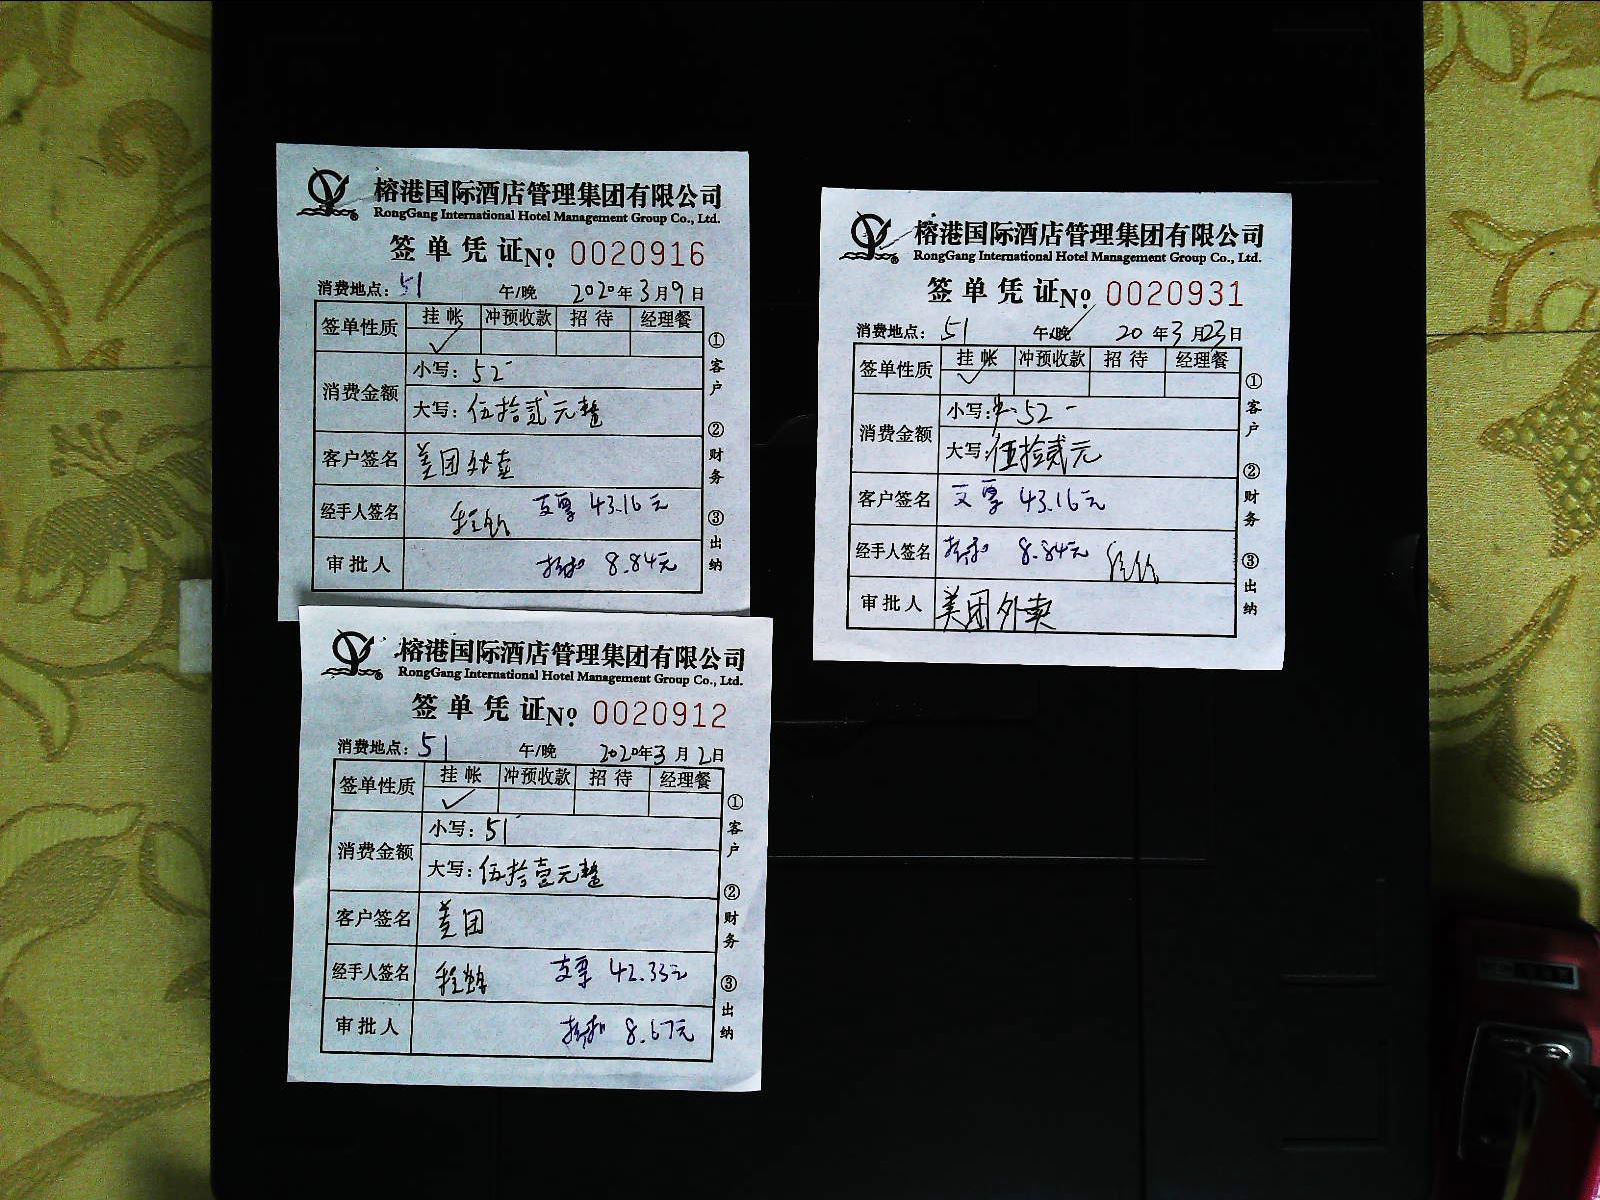 榕港国际酒店管理集团有限公司
RongGang International Hotel Management Group Co., Ltd.
签单凭证№ 0020916
消费地点：51 午/晚 2020年3月9日
签单性质 挂帐 冲预收款 招待 经理餐
✓
消费金额 小写：52-
大写：伍拾贰元整
客户签名 美团外卖
经手人签名 支票 43.16元
审批人 折扣 8.84元
①客户 ②财务 ③出纳
榕港国际酒店管理集团有限公司
RongGang International Hotel Management Group Co., Ltd.
签单凭证№ 0020931
消费地点：51 午/晚 2020年3月23日
签单性质 挂帐 冲预收款 招待 经理餐
✓
消费金额 小写：52-
大写：伍拾贰元
客户签名 支票 43.16元
经手人签名 折扣 8.84元
审批人 美团外卖
①客户 ②财务 ③出纳
榕港国际酒店管理集团有限公司
RongGang International Hotel Management Group Co., Ltd.
签单凭证№ 0020912
消费地点：51 午/晚 2020年3月2日
签单性质 挂帐 冲预收款 招待 经理餐
✓
消费金额 小写：51-
大写：伍拾壹元整
客户签名 美团
经手人签名 支票 42.33元
审批人 折扣 8.67元
①客户 ②财务 ③出纳